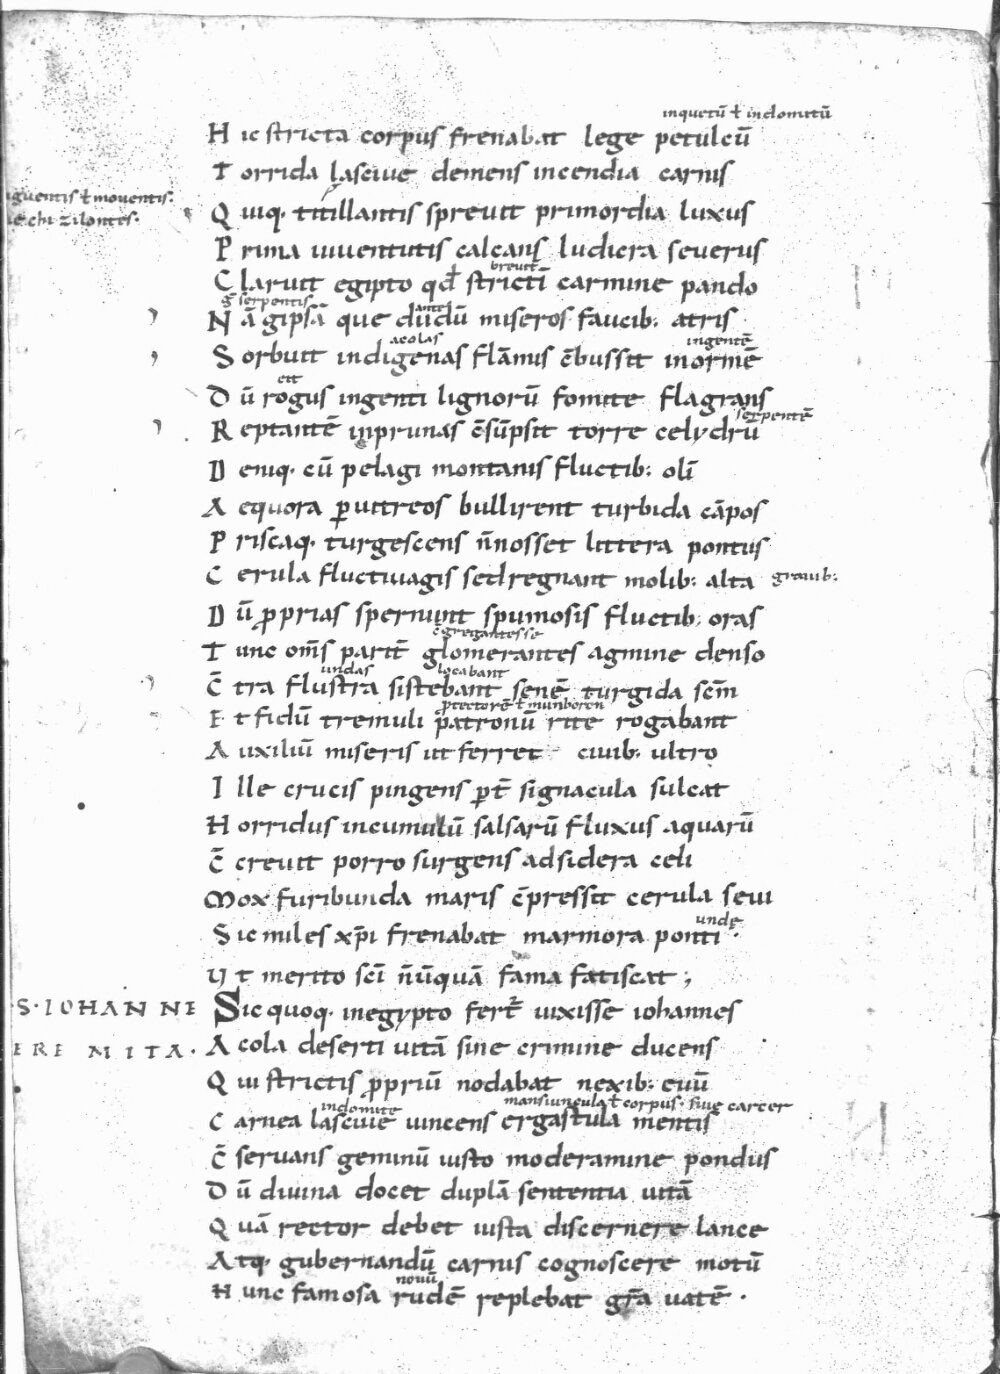 inquetū ł indomitū
H ic stricta corpus frenabat lege petulcū
T orrida lascive demens incendia carnis
guentis ł moventis.
Q uiq. titillantis sprevit primordia luxus
P rima iuuentutis calcans ludicra severus
breuit
C laruit egipto qđ strictī carmine pando
ḡ serpentis
ante
N ā gipsā que dudū miseros faucib: atris
acolas
ingentē
S orbuit indigenas flāmis c̄bussit inormē
eit
D ū rogus ingenti lignorū fomite flagrans
serpentē
R eptantē inprunas c̄sūpsit torre celydrū
D eniq. cū pelagi montanis fluctib: olī
A equora ꝑ uitreos bullirent turbida cāpos
P riscaq. turgescens n̄nosset littera pontus
C erula fluctivagis sedregnant molib: alta grauib:
D ū ꝓprias spernunt spumosis fluctib: oras
c̄gregantesse
T unc om̄s parit̄ glomerantes agmine denso
undas locabant
C̄ tra flustra sistebant senē turgida sc̄m
E t fidū tremuli patronū rite rogabant
A uxiliū miseris ut ferret civib: ultro
I lle crucis pingens ꝑt̄ signacula sulcat
H orridus incumulū salsarū fluxus aquarū
C̄ crevit porro surgens adsidera celi
Mox furibunda maris c̄pressit cerula sevi
undę
S ic miles xp̄i frenabat marmora ponti.
U t merito sc̄i n̄ūquā fama fatiscat;
S. IOHANNE
Sic quoq. inegypto fert̄ vixisse iohannes
ERE MITA.
A cola deserti vitā sine crimine ducens
Q ui strictis ꝓpriū nodabat nexib: evū
indomite mansiuncula ł corpus. sive carcer
C arnea lascive vincens ergastula mentis
C̄ servans geminū iusto moderamine pondus
D ū divina docet duplā sententia vitā
Q uā rector debet iusta discernere lance
A tq. gubernandū carnis cognoscere motū
nouū
H unc famosa rudē replebat gr̄a vatē.